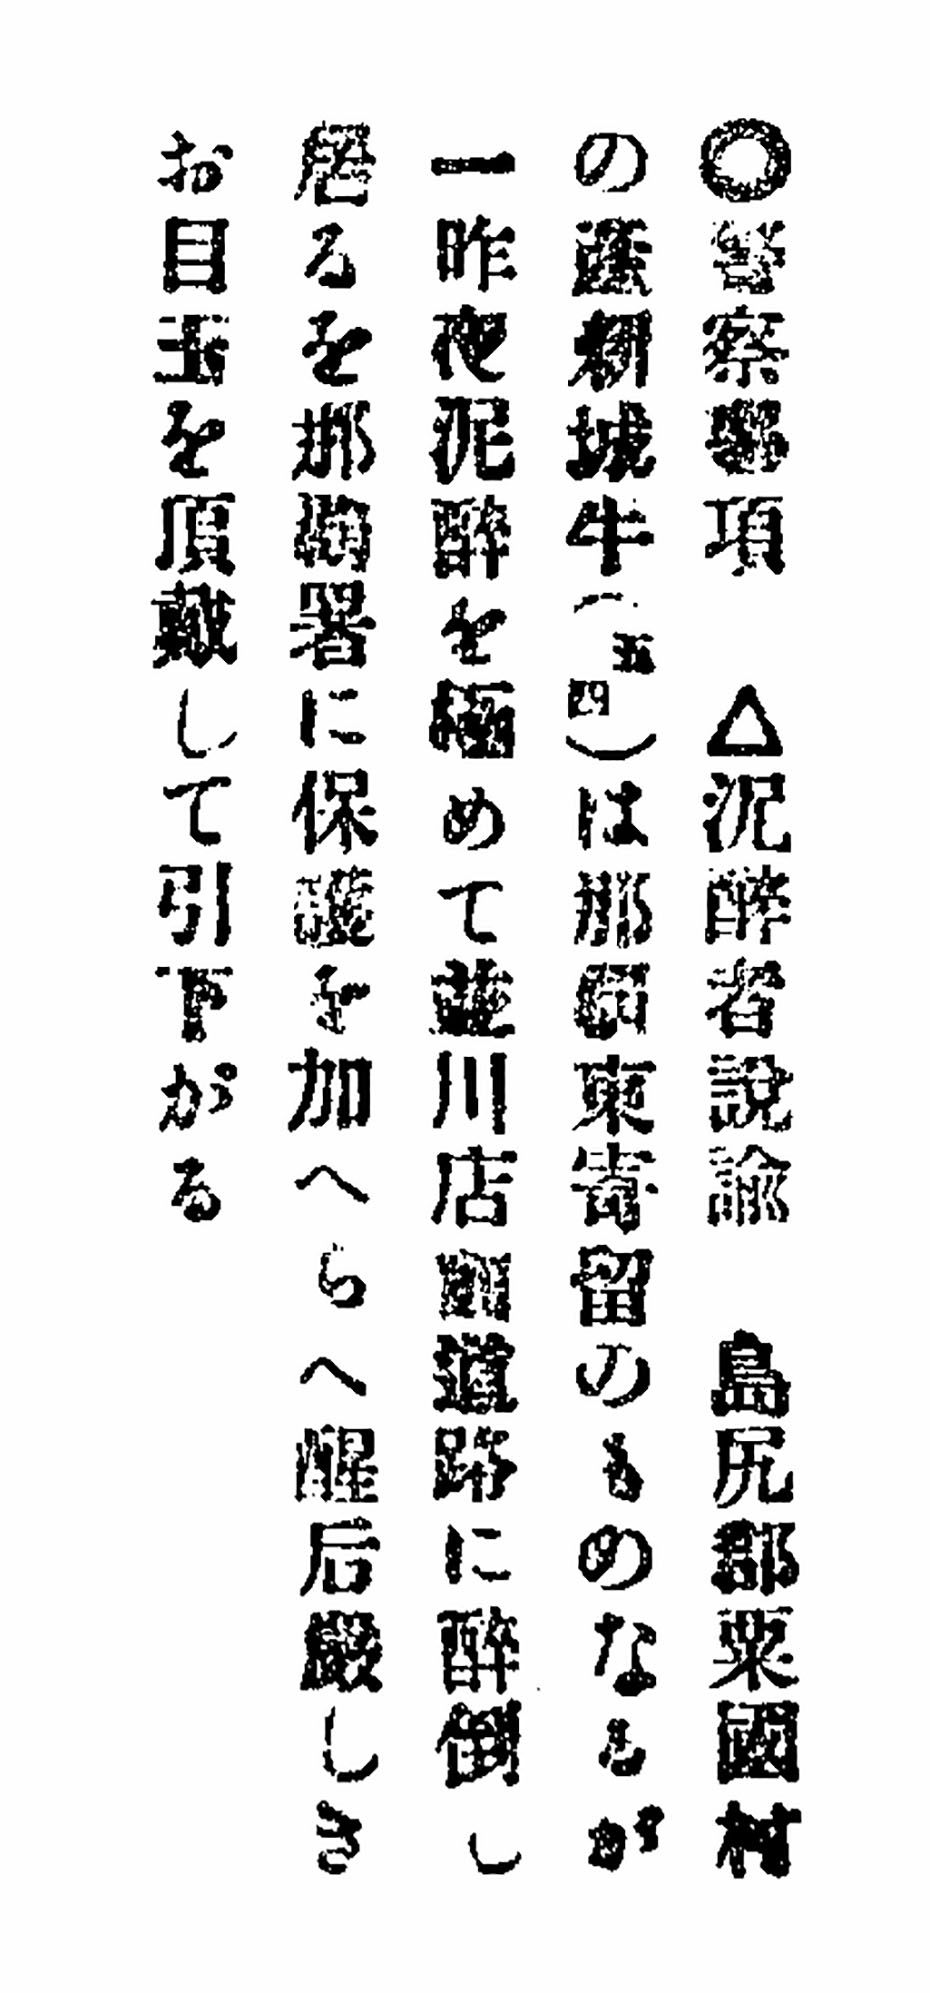 ◯警察事項　△泥酔者説諭　島尻郡粟國村
の新城牛(五四)は那覇東寄留のものなるが
一昨夜泥醉を極めて並川店前道路に醉倒し
居るを那覇署に保護を加へられ醒后嚴しき
お目玉を頂戴して引下がる